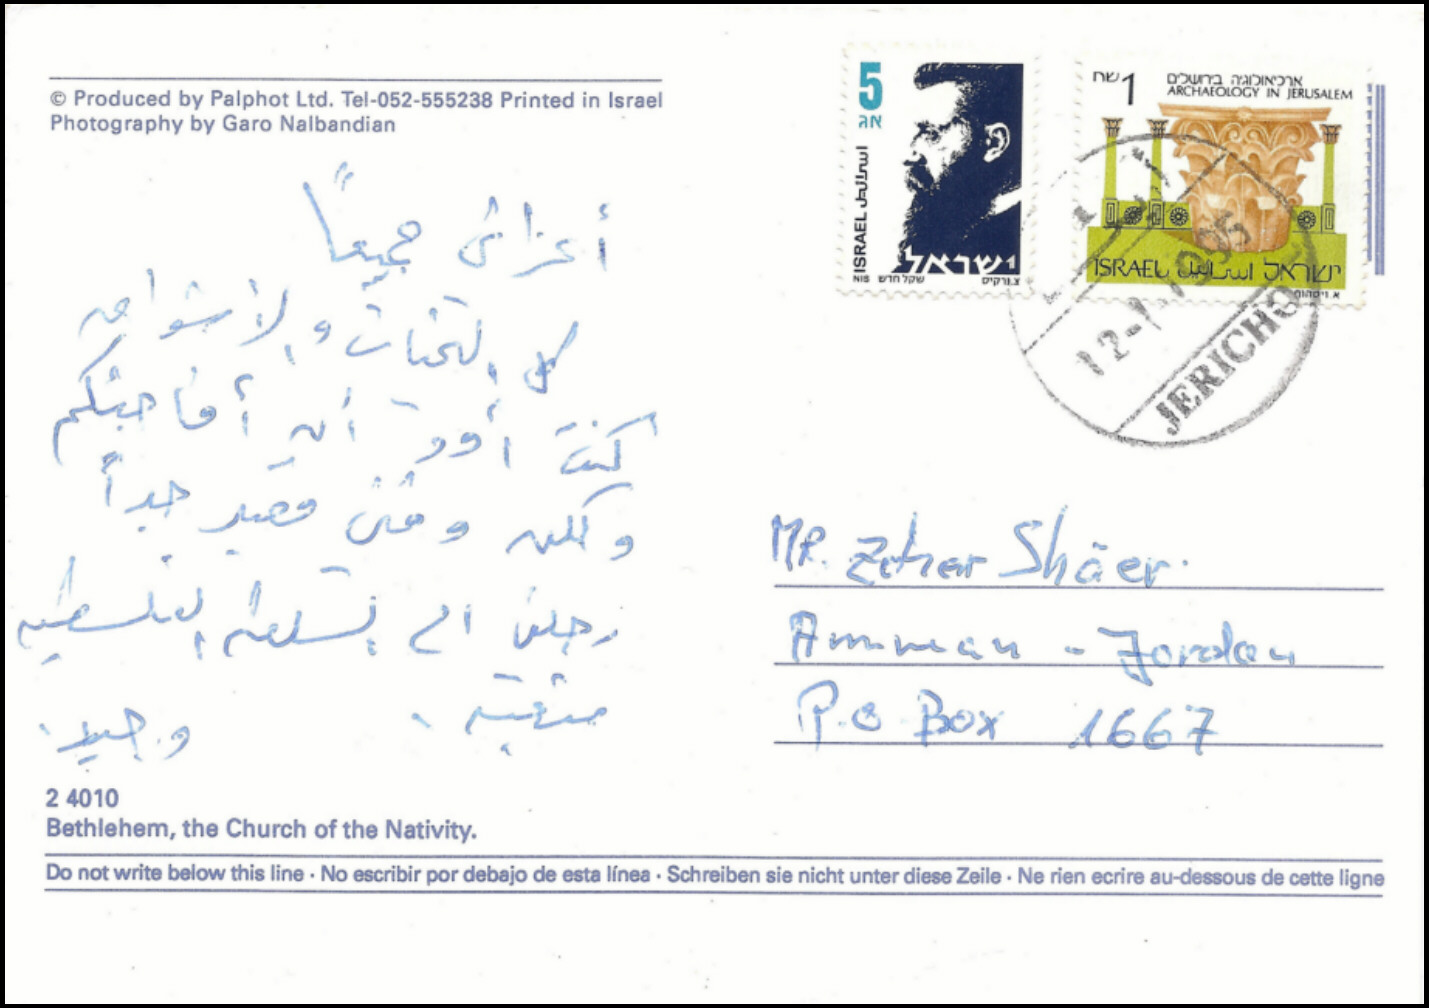 © Produced by Palphot Ltd. Tel-052-555238 Printed in Israel
Photography by Garo Nalbandian
أعزائي جميعاً
كل التحيات والأشواق
كنت أود أن أفاجئكم
ولكن وقتي قصير جداً
رحلتي الى السلطة الفلسطينية
متعبة.
وحيد.
2 4010
Bethlehem, the Church of the Nativity.
Do not write below this line · No escribir por debajo de esta línea · Schreiben sie nicht unter diese Zeile · Ne rien ecrire au-dessous de cette ligne
5
אג
ISRAEL اسرائيل
ישראל
NIS שקל חדש
1 שח
ארכיאולוגיה בירושלים
ARCHAEOLOGY IN JERUSALEM
ISRAEL اسرائيل ישראל
JERICHO
Mr. Zeher Shäer.
Amman - Jordan
P.O Box 1667